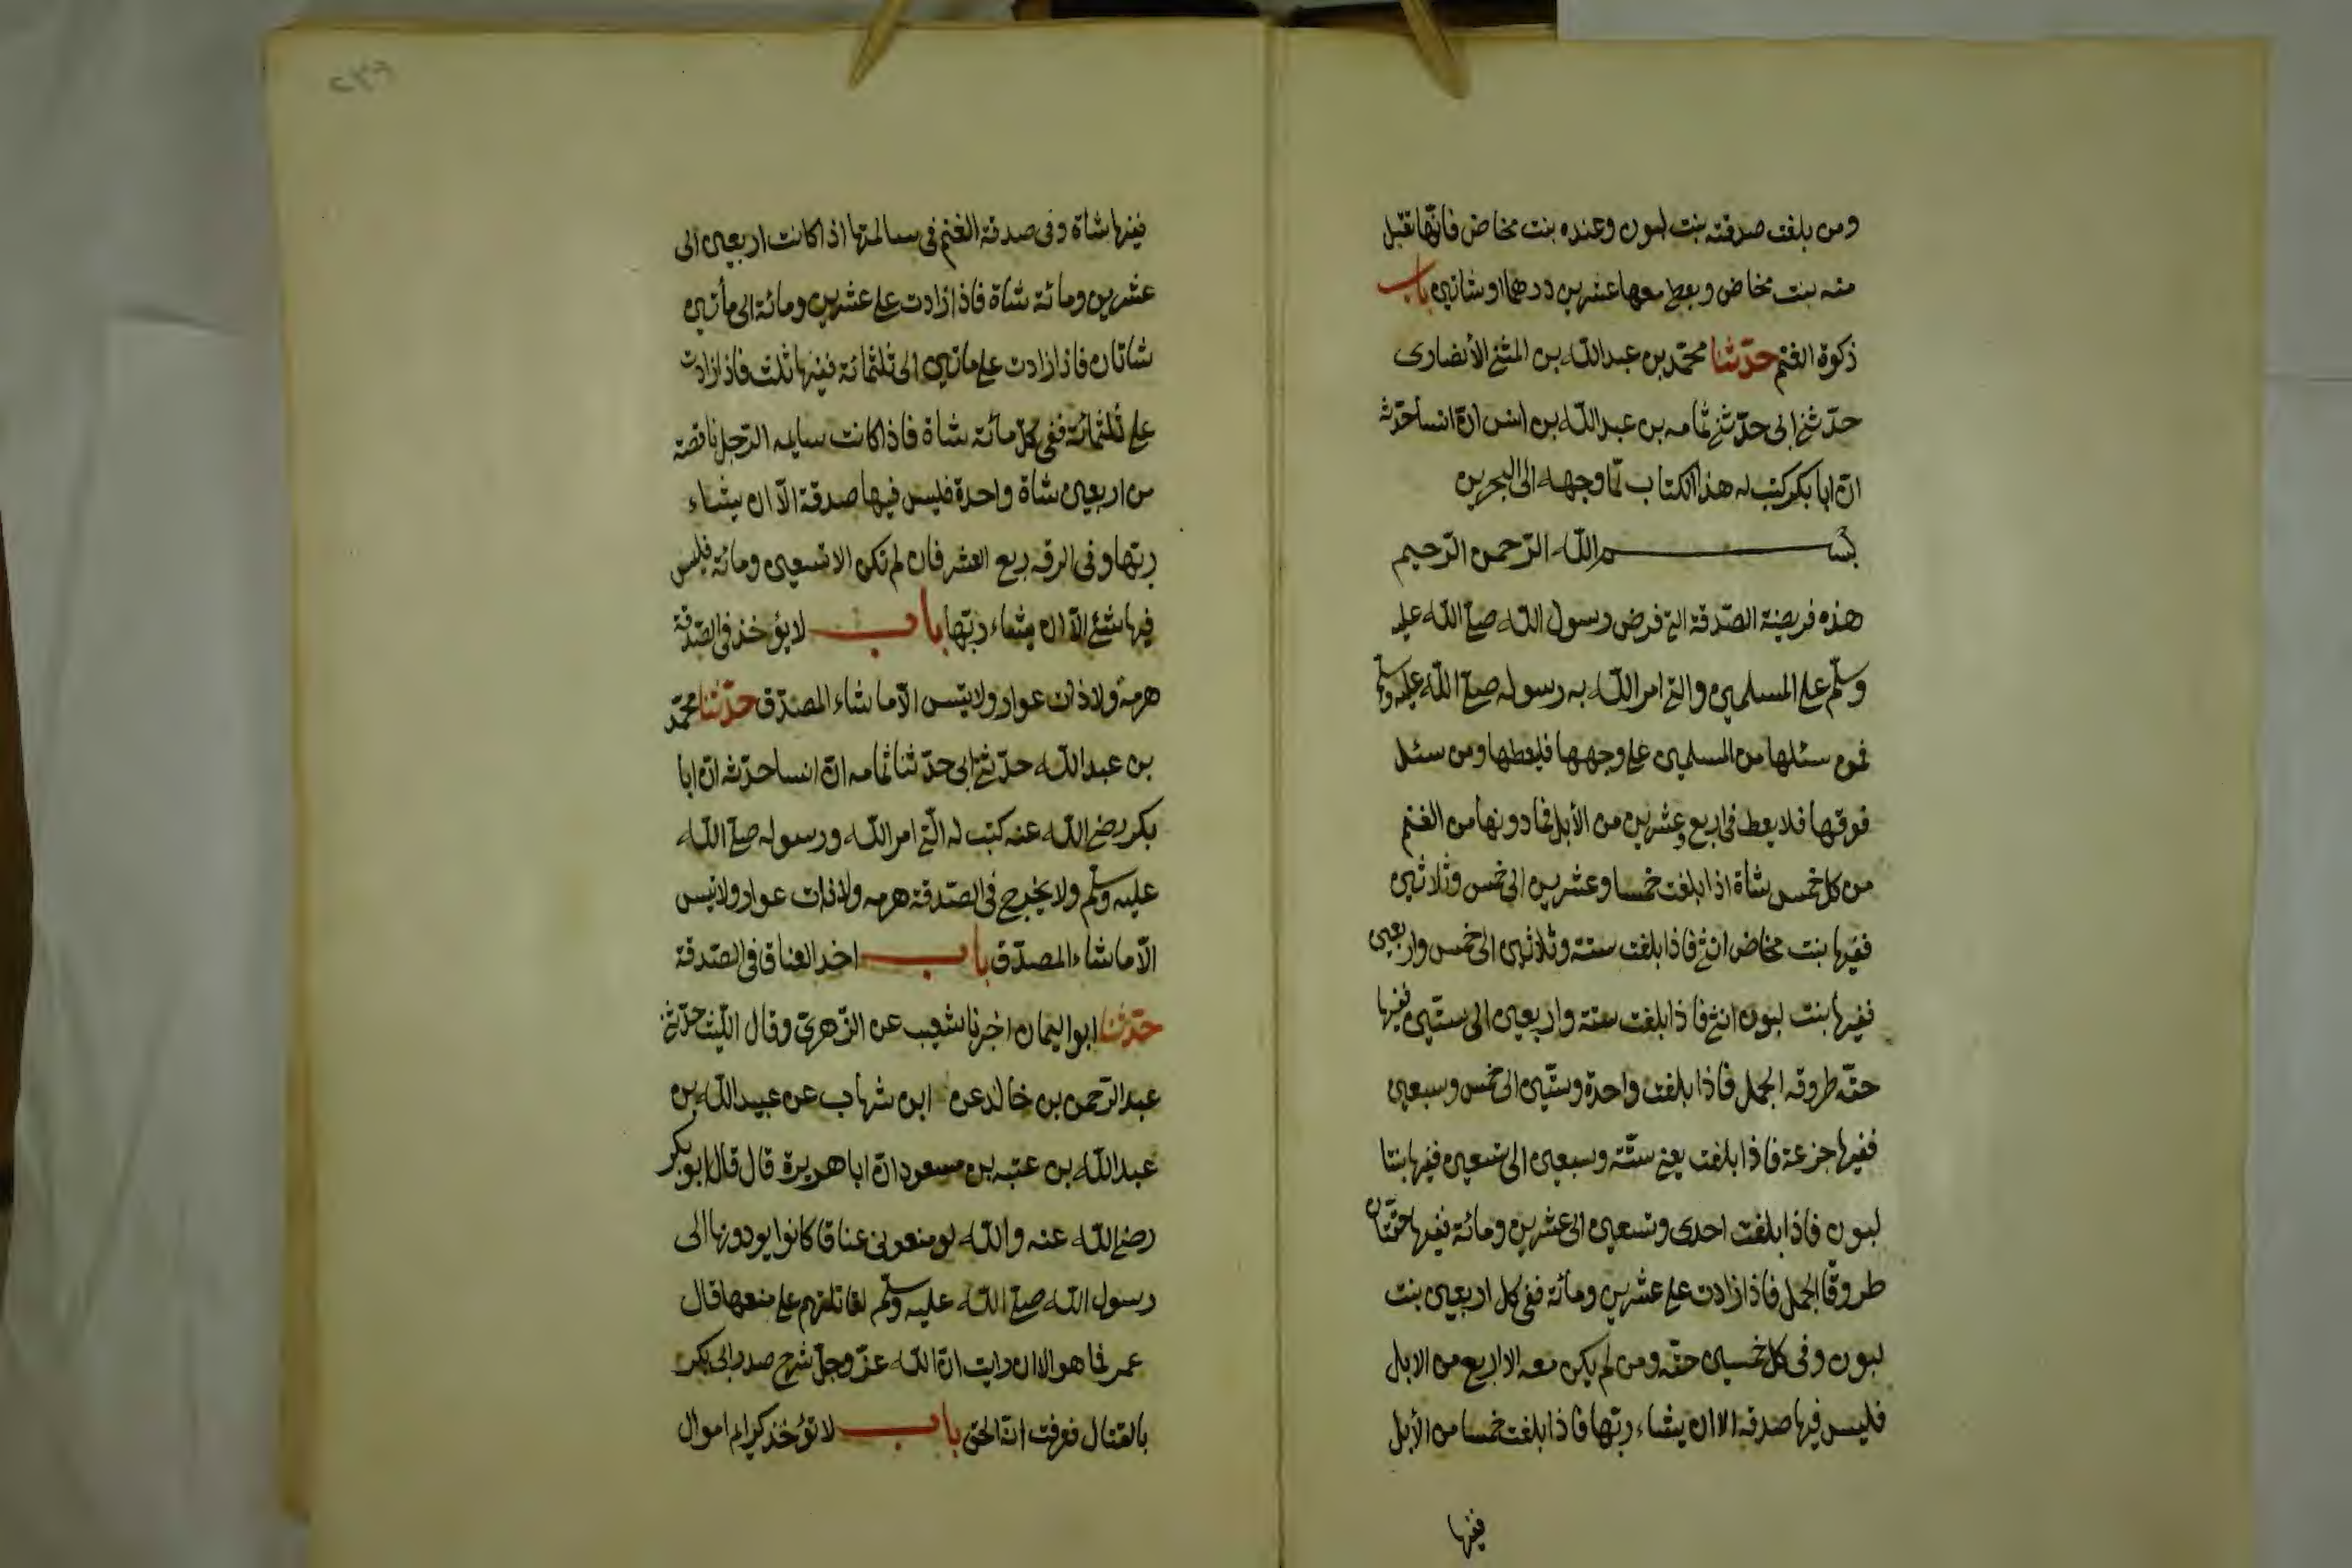 ومن بلغت صدقته بنت لبون وعنده بنت مخاض فانّها تقبل
منه بنت مخاض ويعط معها عشرين درهما او شاتين باب
زكوة الغنم حدّثنا محمّد بن عبد الله بن المثنى الأنصارى
حدّثنى ابى حدّثنى ثمامه بن عبد الله بن انس انّ انسا حدّثه
انّ ابا بكر كتب له هذا الكتاب لمّا وجهه الى البحرين
بسم الله الرّحمن الرّحيم
هذه فريضة الصّدقة التى فرض رسول الله صلى الله عليه
وسلّم على المسلمين والتى امر الله به رسوله صلى الله عليه وسلّم
فمن سئلها من المسلمين على وجهها فليعطها ومن سئل
فوقها فلا يعط فى اربع وعشرين من الأبل فما دونها من الغنم
من كل خمس شاة اذا بلغت خمسا وعشرين الى خمس وثلاثين
ففيها بنت مخاض انثى فاذا بلغت ستة وثلاثين الى خمس واربعين
ففيها بنت لبون انثى فاذا بلغت ستة واربعين الى ستّين ففيها
حقّه طروقه الجمل فاذا بلغت واحدة وستّين الى خمس وسبعين
ففيها جزعة فاذا بلغت يعنى ستّة وسبعين الى تسعين ففيها بنتا
لبون فاذا بلغت احدى وتسعين الى عشرين ومائة ففيها حقّتان
طروقا الجمل فاذا زادت على عشرين ومائة ففى كل اربعين بنت
لبون وفى كل خمسين حقّه ومن لم يكن معه الا اربع من الابل
فليس فيها صدقه الا ان يشاء ربّها فاذا بلغت خمسا من الأبل
ففيها
٢٣٩
ففيها شاة وفى صدقة الغنم فى سائمتها اذا كانت اربعين الى
عشرين ومائة شاة فاذا زادت على عشرين ومائة الى مأتين
شاتان فاذا زادت على ماتين الى ثلثمائة ففيها ثلث فاذا زادت
على ثلثمائة ففى كلّ مائة شاة فاذا كانت سايمه الرّجل ناقصة
من اربعين شاة واحدة فليس فيها صدقة الّا ان يشاء
ربّها وفى الرقه ربع العشر فان لم تكن الا تسعين ومائة فليس
فيها شئ الّا ان يشاء ربّها باب لا يؤخذ فى الصّدقة
هرمة ولا ذات عوار ولا تيس الّا ما شاء المصدّق حدّثنا محمّد
بن عبد الله حدّثنى ابى حدّثنا ثمامه انّ انسا حدّثه انّ ابا
بكر رضى الله عنه كتب له الّتى امر الله ورسوله صلى الله
عليه وسلّم ولا يخرج فى الصّدقة هرمه ولا ذات عوار ولا تيس
الّا ما شاء المصدّق باب اخذ العناق فى الصّدقة
حدّثنا ابو اليمان اخبرنا شعيب عن الزّهرىّ وقال اللّيث حدّثنى
عبد الرّحمن بن خالد عن ابن شهاب عن عبيد الله بن
عبد الله بن عتبه بن مسعود انّ ابا هريرة قال قال ابو بكر
رضى الله عنه والله لو منعونى عناقا كانوا يودونها الى
رسول الله صلى الله عليه وسلّم لقاتلتهم على منعها قال
عمر فما هو الا ان رايت انّ الله عزّ وجلّ شرح صدر ابى بكر
بالقتال فعرفت انّه الحق باب لا تؤخذ كرايم اموال